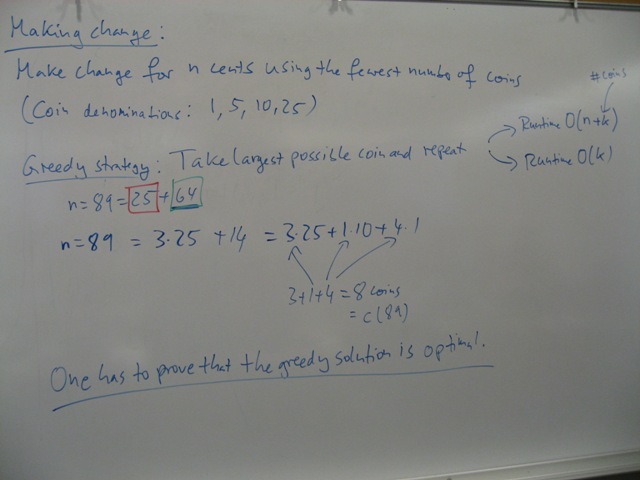 Making change:
Make change for n cents using the fewest number of coins
(Coin denominations: 1, 5, 10, 25)
#coins
Runtime O(n+k)
Greedy strategy: Take largest possible coin and repeat
Runtime O(k)
n=89=25+64
n=89 = 3·25 +14 = 3·25+1·10+4·1
3+1+4=8 coins
=c(89)
One has to prove that the greedy solution is optimal.